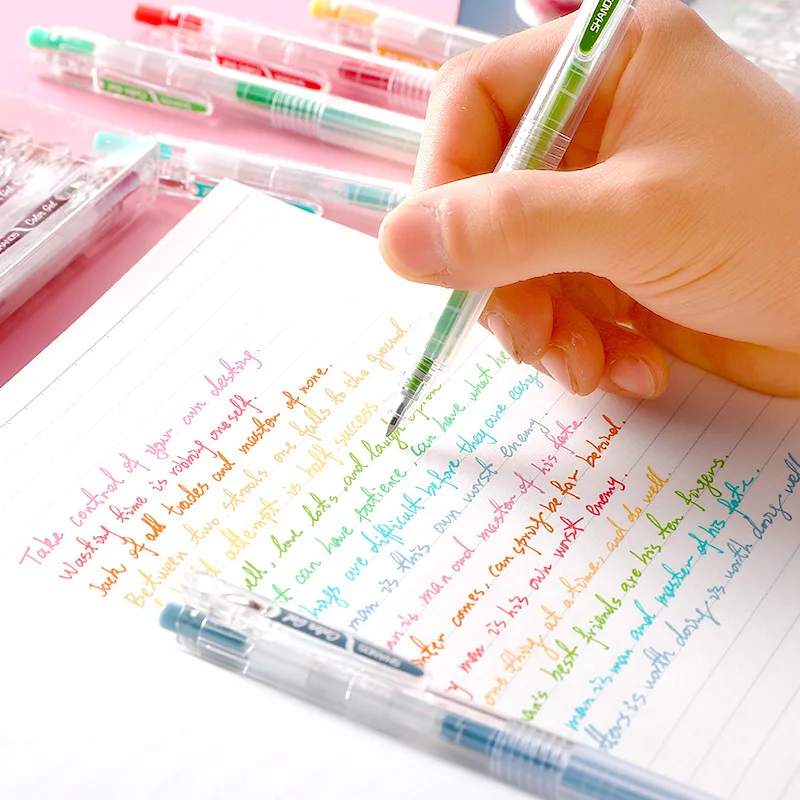 Take control of your own destiny.
Wasting time is robbing oneself.
Jack of all trades and master of none.
Between two strools one falls to the ground.
attempt is half success
ell, love lots, and laugh
t can have patience, can have what he
hings are difficult before they are easy
man is this own worst enemy
an is man and master of his fate.
inter comes, can spring be far behind.
y man is his own worst enemy.
one thing at a time, and do well.
an's best friends are his ten fingers.
man is man and master of his fate.
tters is worth doing is worth doing well
SHANDS
Color Gel
SHANDS
Color Gel